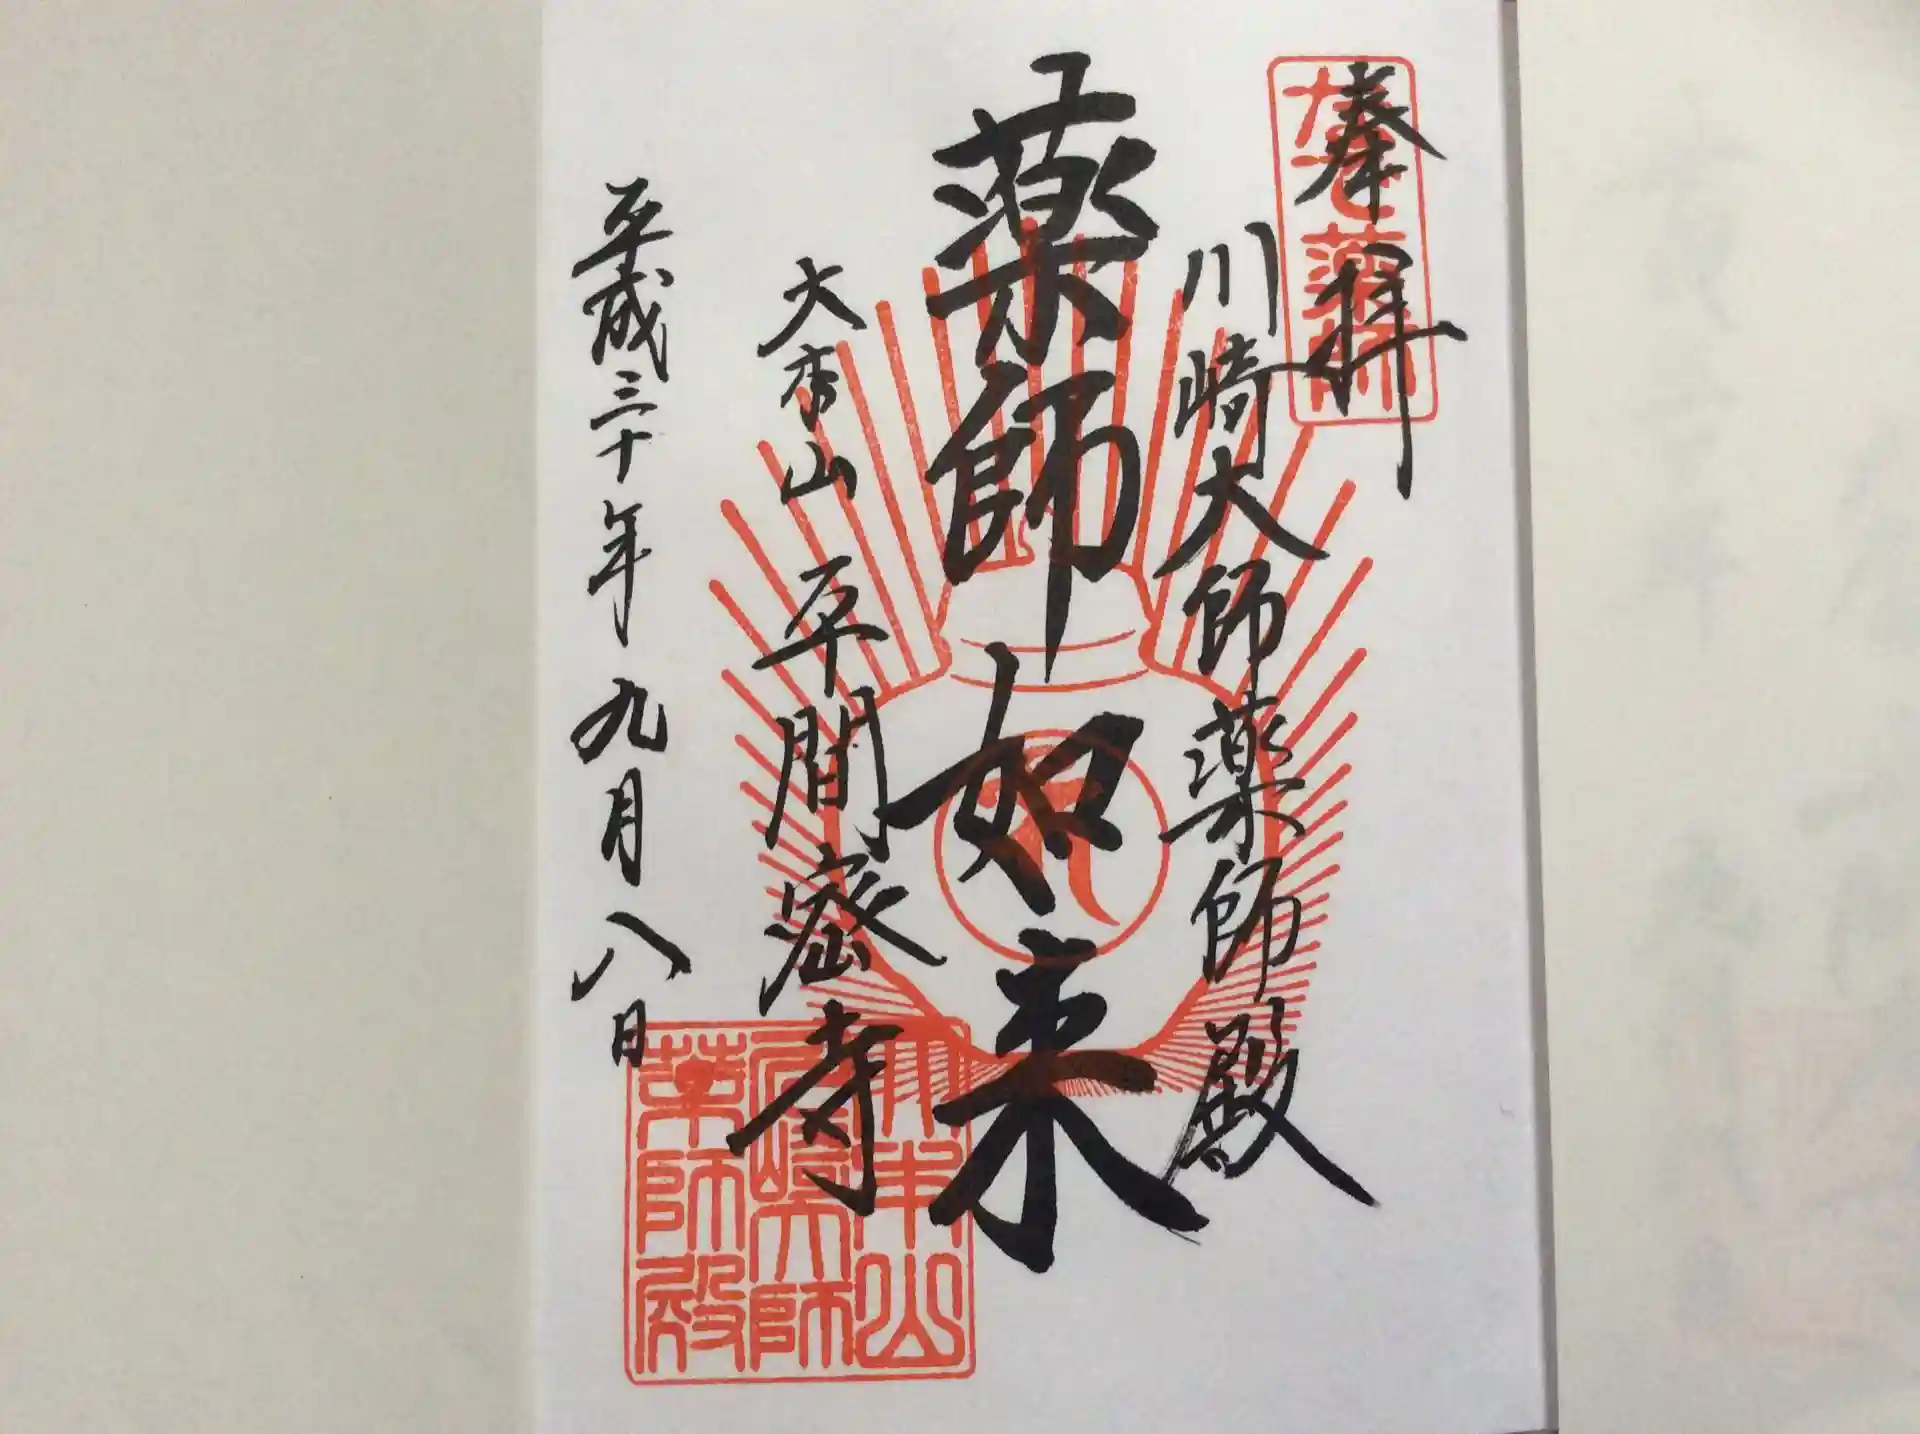 奉拝
なで薬師
川崎大師薬師殿
薬師如来
大本山 平間密寺
平成三十年九月八日
大本山
川崎大師
薬師殿